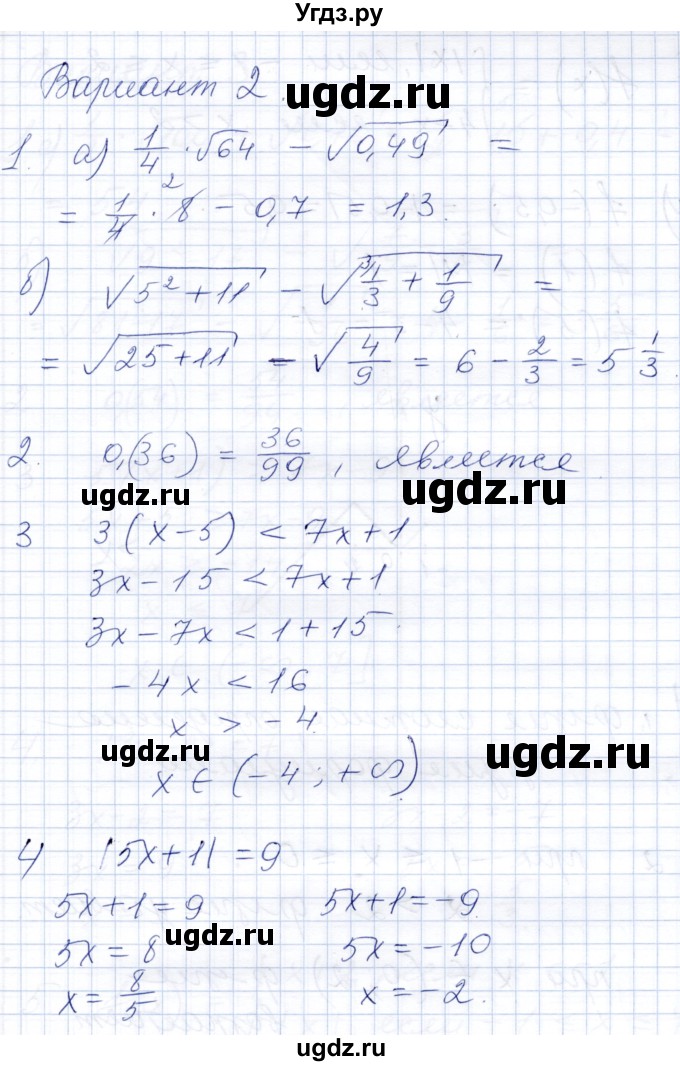 Угдз.ру
Вариант 2.
ugdz.ru
1. а) 1/4 · √64 − √0,49 =
= 1/4 · 8 2 − 0,7 = 1,3.
б) √(5² + 11) − √(3\ 1/3 + 1/9) =
= √(25 + 11) − √(4/9) = 6 − 2/3 = 5 1/3.
2. 0,(36) = 36/99, является
ugdz.ru
ugdz.ru
3 3(x − 5) < 7x + 1
3x − 15 < 7x + 1
3x − 7x < 1 + 15.
− 4x < 16
x > −4.
ugdz.ru
ugdz.ru
x ∈ (−4; +∞)
4) |5x + 1| = 9
5x + 1 = 9 5x + 1 = −9.
ugdz.ru
5x = 8 5x = −10
x = 8/5 x = −2.
ugdz.ru
ugdz.ru